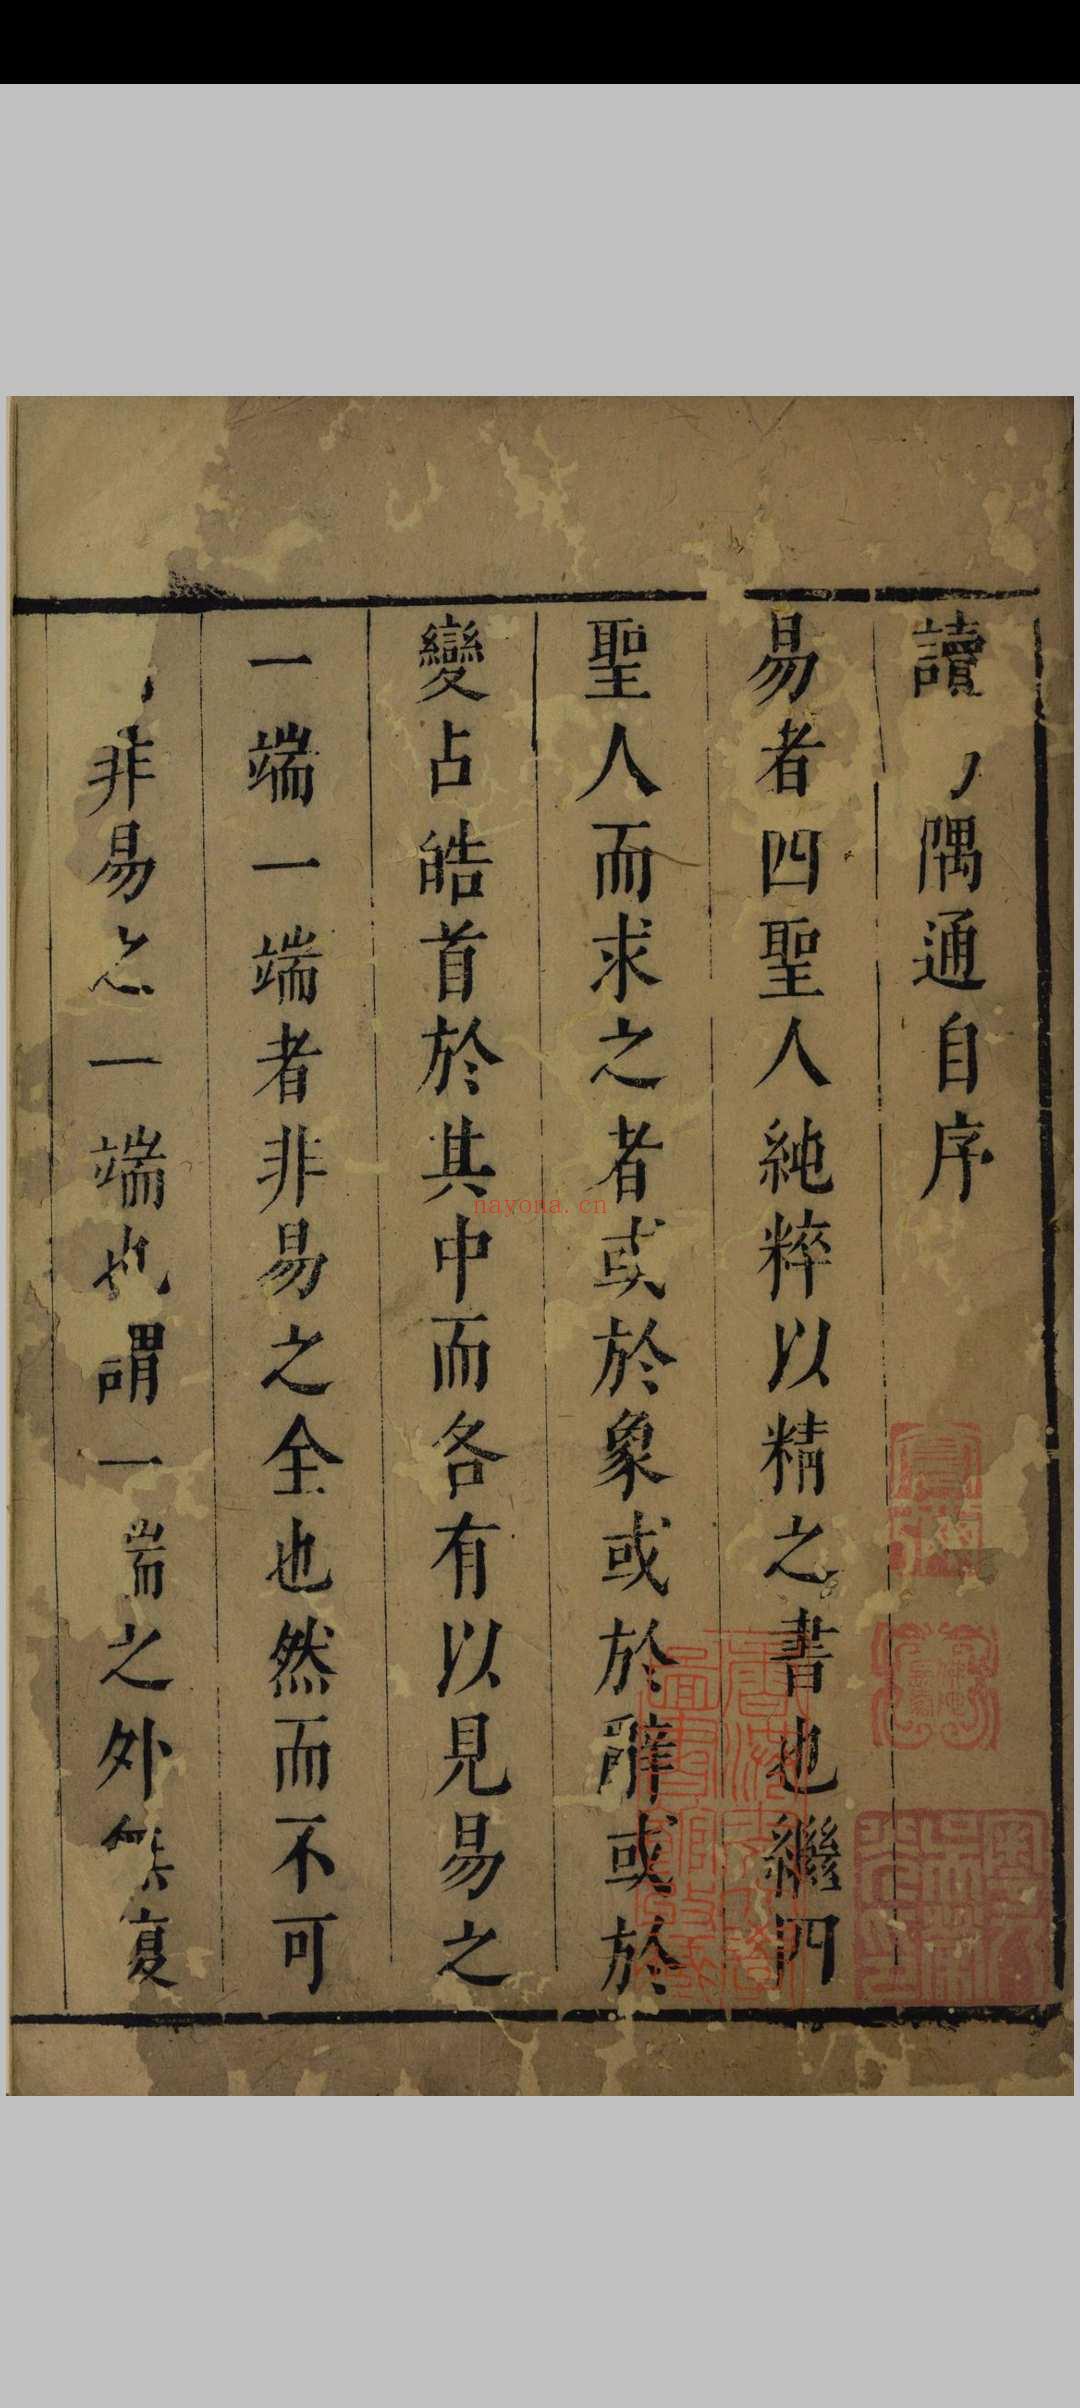 讀 隅通自序
易者四聖人純粹以精之書也繼四
聖人而求之者或於象或於辭或於
變占皓首於其中而各有以見易之
一端一端者非易之全也然而不可
非易之一端也謂一端之外 復
nayona.cn